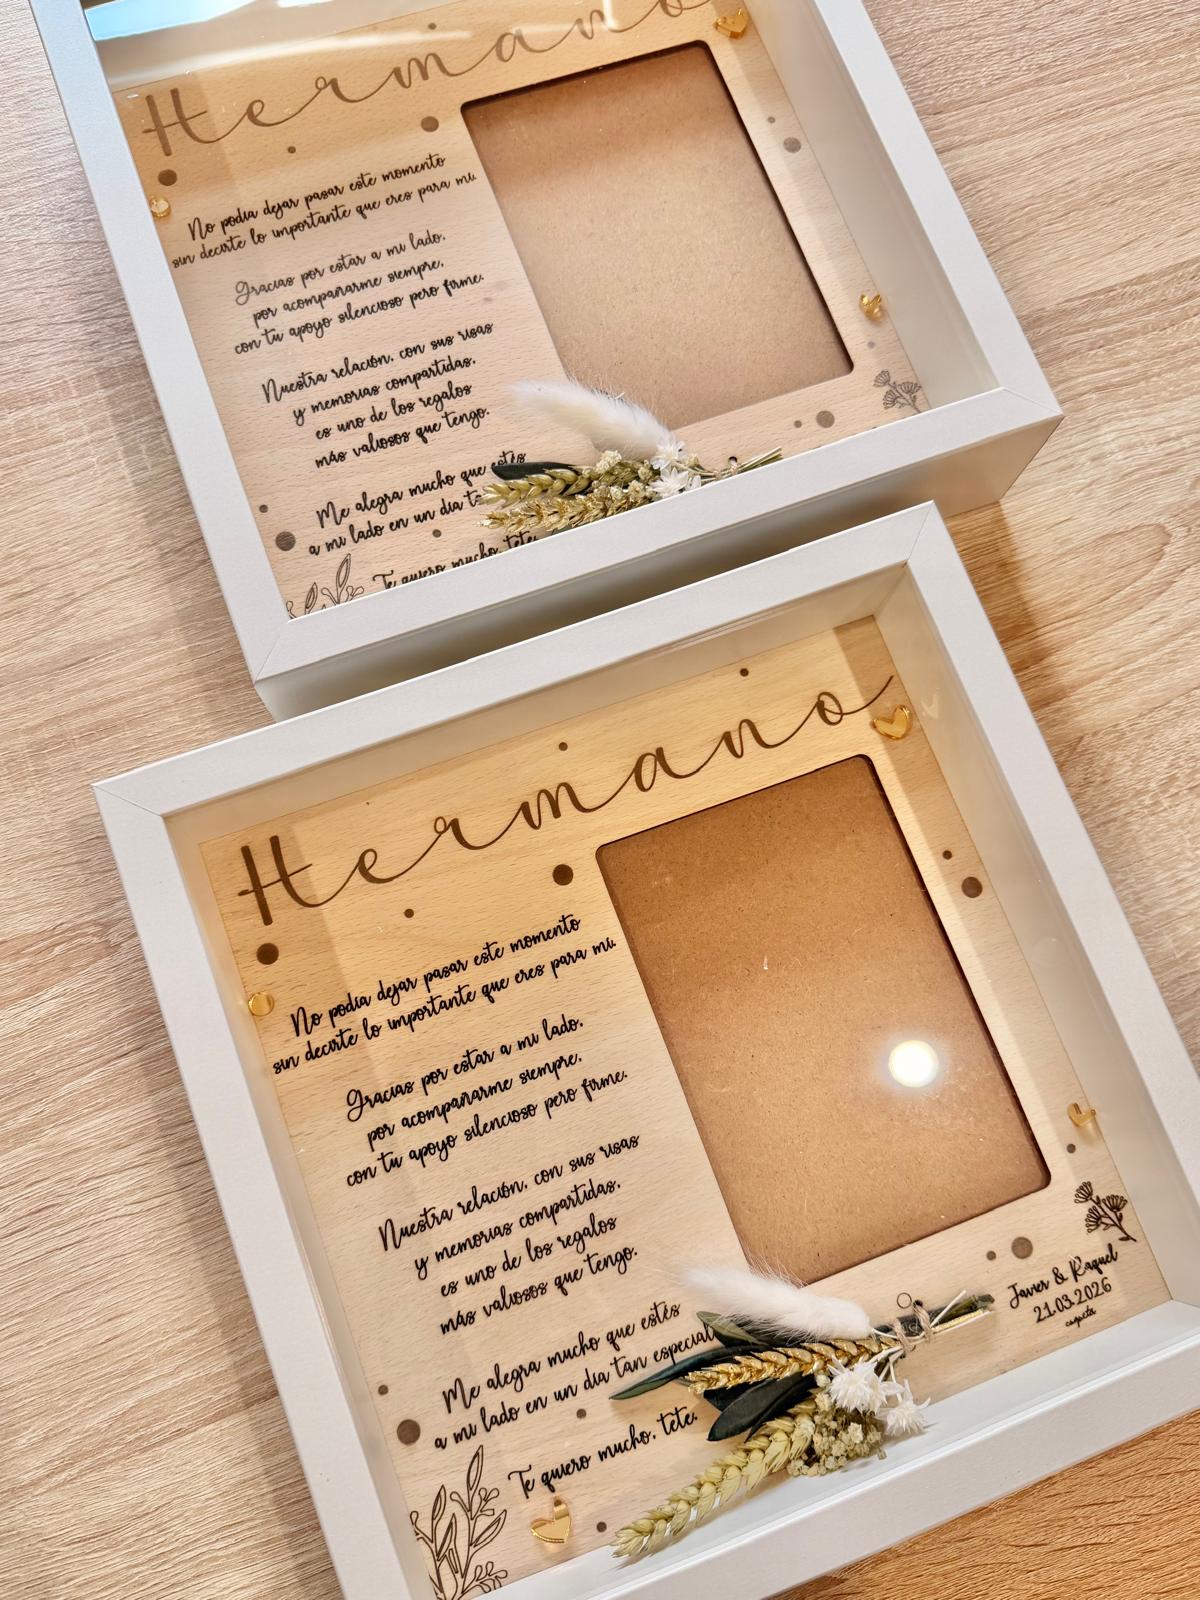 Hermano
No podía dejar pasar este momento
sin decirte lo importante que eres para mí.
Gracias por estar a mi lado,
por acompañarme siempre,
con tu apoyo silencioso pero firme.
Nuestra relación, con sus risas
y memorias compartidas,
es uno de los regalos
más valiosos que tengo.
Me alegra mucho que estés
a mi lado en un día
Te quiero mucho, tete.
Hermano
No podía dejar pasar este momento
sin decirte lo importante que eres para mí.
Gracias por estar a mi lado,
por acompañarme siempre,
con tu apoyo silencioso pero firme.
Nuestra relación, con sus risas
y memorias compartidas,
es uno de los regalos
más valiosos que tengo.
Me alegra mucho que estés
a mi lado en un día tan especial
Te quiero mucho, tete.
Javier & Raquel
21.03.2026